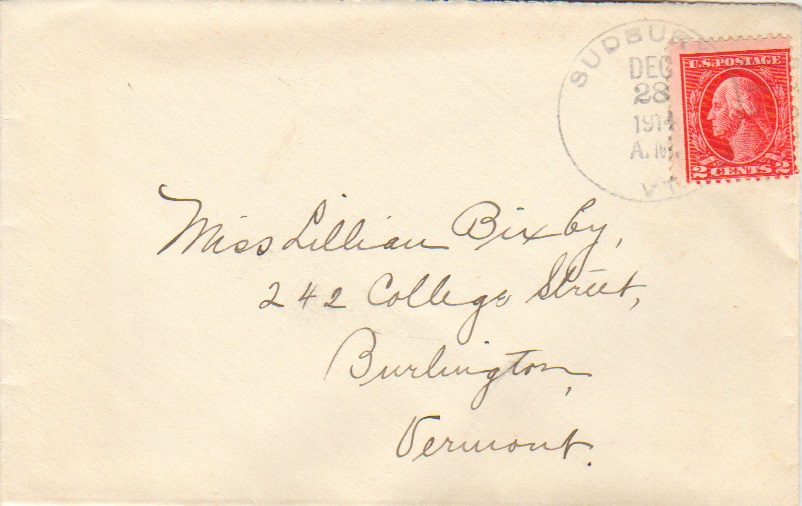 SUDBURY
DEC
28
1914
A.M.
VT.
U.S. POSTAGE
2 CENTS 2
Miss Lillian Bixby,
242 College Street,
Burlington,
Vermont.